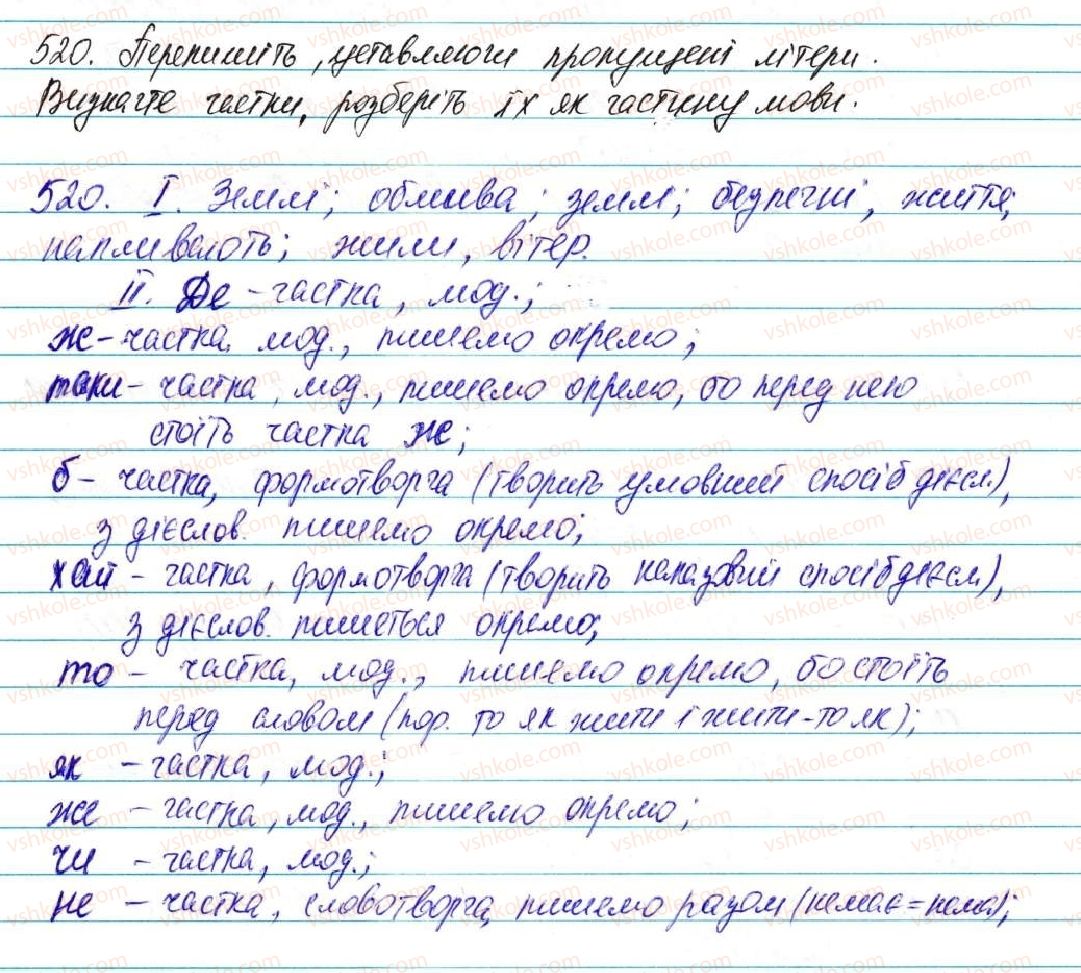 520. Перепишіть, уставляючи пропущені літери.
Визначте частки, розберіть їх як частину мови.
520. І. Землі; облива; землі; безпечні, життя,
напливають; жили, вітер.
ІІ. Де - частка, мод.;
ж - частка, мод., пишемо окремо;
таки - частка, мод., пишемо окремо, бо перед нею
стоїть частка ж;
б - частка, формотворча (творить умовний спосіб дієсл.),
з дієслов. пишемо окремо;
хай - частка, формотворча (творить наказовий спосіб дієсл.),
з дієслов. пишеться окремо;
то - частка, мод., пишемо окремо, бо стоїть
перед словом (пор. то як жити і жити-то як);
як - частка, мод.;
же - частка, мод., пишемо окремо;
чи - частка, мод.;
не - частка, словотворча, пишемо разом (немає = нема);